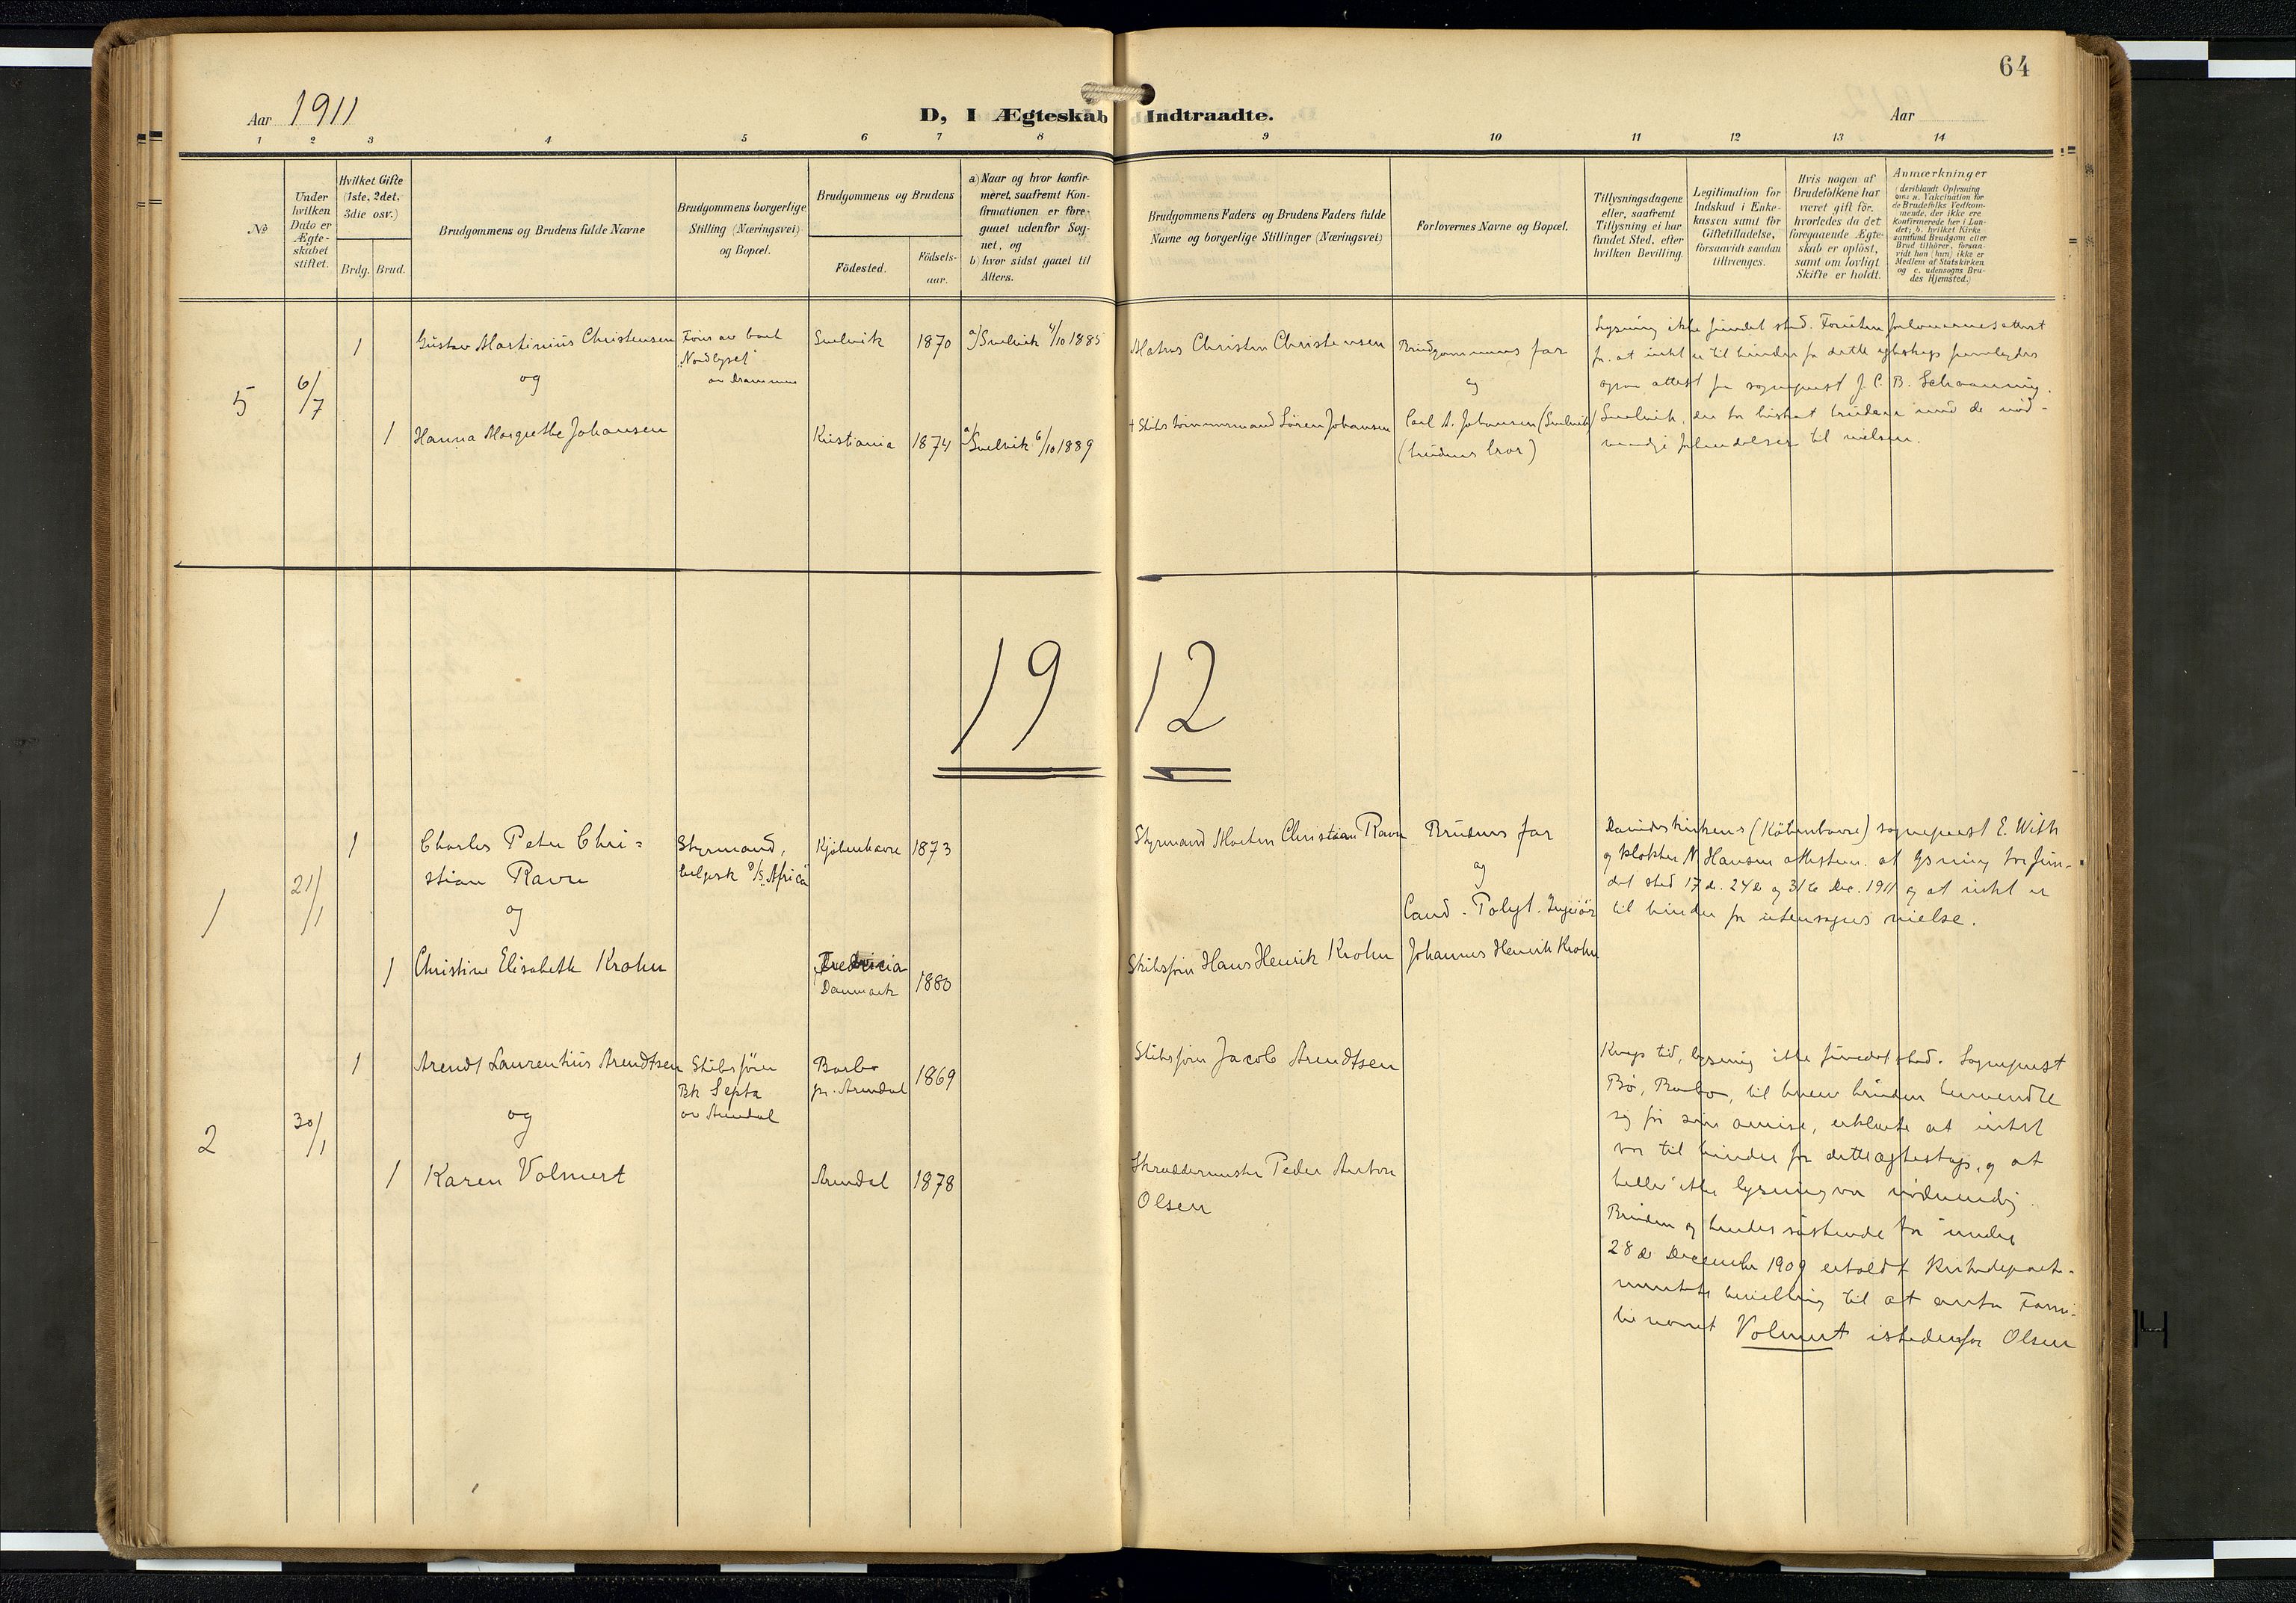 64
Aar 1911
D, I Ægteskab Indtraadte.
Aar
1 2 3 4 5 6 7 8 9 10 11 12 13 14
No
Under hvilken Dato er Ægte-skabet stiftet.
Hvilket Gifte (1ste, 2det, 3die osv.)
Brdg. Brud.
Brudgommens og Brudens fulde Navne
Brudgommens borgerlige Stilling (Næringsvei) og Bopæl.
Brudgommens og Brudens
Födested.
Födsels-aar.
a) Naar og hvor konfir-
meret, saafremt Kon-
firmationen er fore-
gaaet udenfor Sog-
net, og
b) hvor sidst gaaet til
Alters.
Brudgommens Faders og Brudens Faders fulde
Navne og borgerlige Stillinger (Næringsvei)
Forlovernes Navne og Bopæl.
Tillysningsdagene
eller, saafremt
Tillysning ei har
fundet Sted, efter
hvilken Bevilling.
Legitimation for
Indskud i Enke-
kassen samt for
Giftetilladelse,
forsaavidt saadan
tiltrænges.
Hvis nogen af
Brudefolkene har
været gift för,
hvorledes da det
foregaaende Ægte-
skab er oplöst,
samt om lovligt
Skifte er holdt.
Anmærkninger
(deriblandt Oplysning
om: a. Vaccination for
de Brudefolks Vedkom-
mende, der ikke ere
Konfirmerede her i Lan-
det; b. hvilket Kirke-
samfund Brudgom eller
Brud tilhörer, forsaa-
vidt han (hun) ikke er
Medlem af Statskirken
og c. udensogns Bru-
des Hjemsted.)
5
6/7
1
Gustav Martinius Christensen
og
1
Hanna Margrethe Johansen
Förer av bark
"Nordlyset"
av Drammen
Svelvik
1870
a) Svelvik 4/10 1885
Kristiania
1874
a) Svelvik 6/10 1889
Matros Christen Christensen
† Skibstömmermand Sören Johansen
Brudgommens far
og
Carl A. Johansen (Svelvik)
(brudens bror)
Lysning ikke fundet sted. Foruten forlovernes attest
for at intet er til hinder for dette egteskap fremlagdes
ogsaa attest fra sogneprest J. C. B. Schanning,
Svelvik, der har bistaat brudene med de nöd-
vendige forberedelser til vielsen.
19 12
1
21/1
1
Charles Peter Chri=
stian Ravn
og
1
Christine Elisabeth Krohn
Styrmand,
belgisk D/S. "Africa"
Kjöbenhavn
1873
Fredericia
Danmark
1880
Styrmand Morten Christian Ravn
Skibsförer Hans Henrik Krohn
Brudens far
og
Cand. Polyt. Ingeniör
Johannes Henrik Krohn
Davidskirkens (Köbenhavn) sogneprest E. With
og klokker N. Hansen attesterer at lysning har fun-
det sted 17de, 24de og 31te Dec. 1911 og at intet er
til hinder for utensogns vielse.
2
30/1
1
Arendt Laurentius Arendtsen
og
1
Karen Volmert
Skibsförer
Bk Septa
av Arendal
Barbo
pr. Arendal
1869
Arendal
1878
Skibsförer Jacob Arendtsen
Skreddermester Peder Anton
Olsen
Knap tid, lysning ikke fundet sted. Sogneprest
Bö, Barbo, til hvem bruden henvendte
sig för sin avreise, erklærte at intet
var til hinder for dette egteskap, og at
heller ikke lysning var nödvendig.
Bruden og hendes söskende har under
28de December 1909 erholdt Kirkedeparte-
mentets bevilling til at anta Fami-
lienavnet Volmert istedenfor Olsen